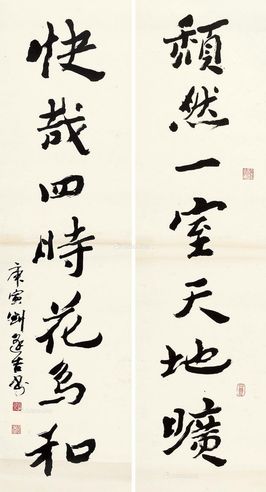 頹然一室天地曠
快哉四時花鳥和
庚寅劉遂吉書